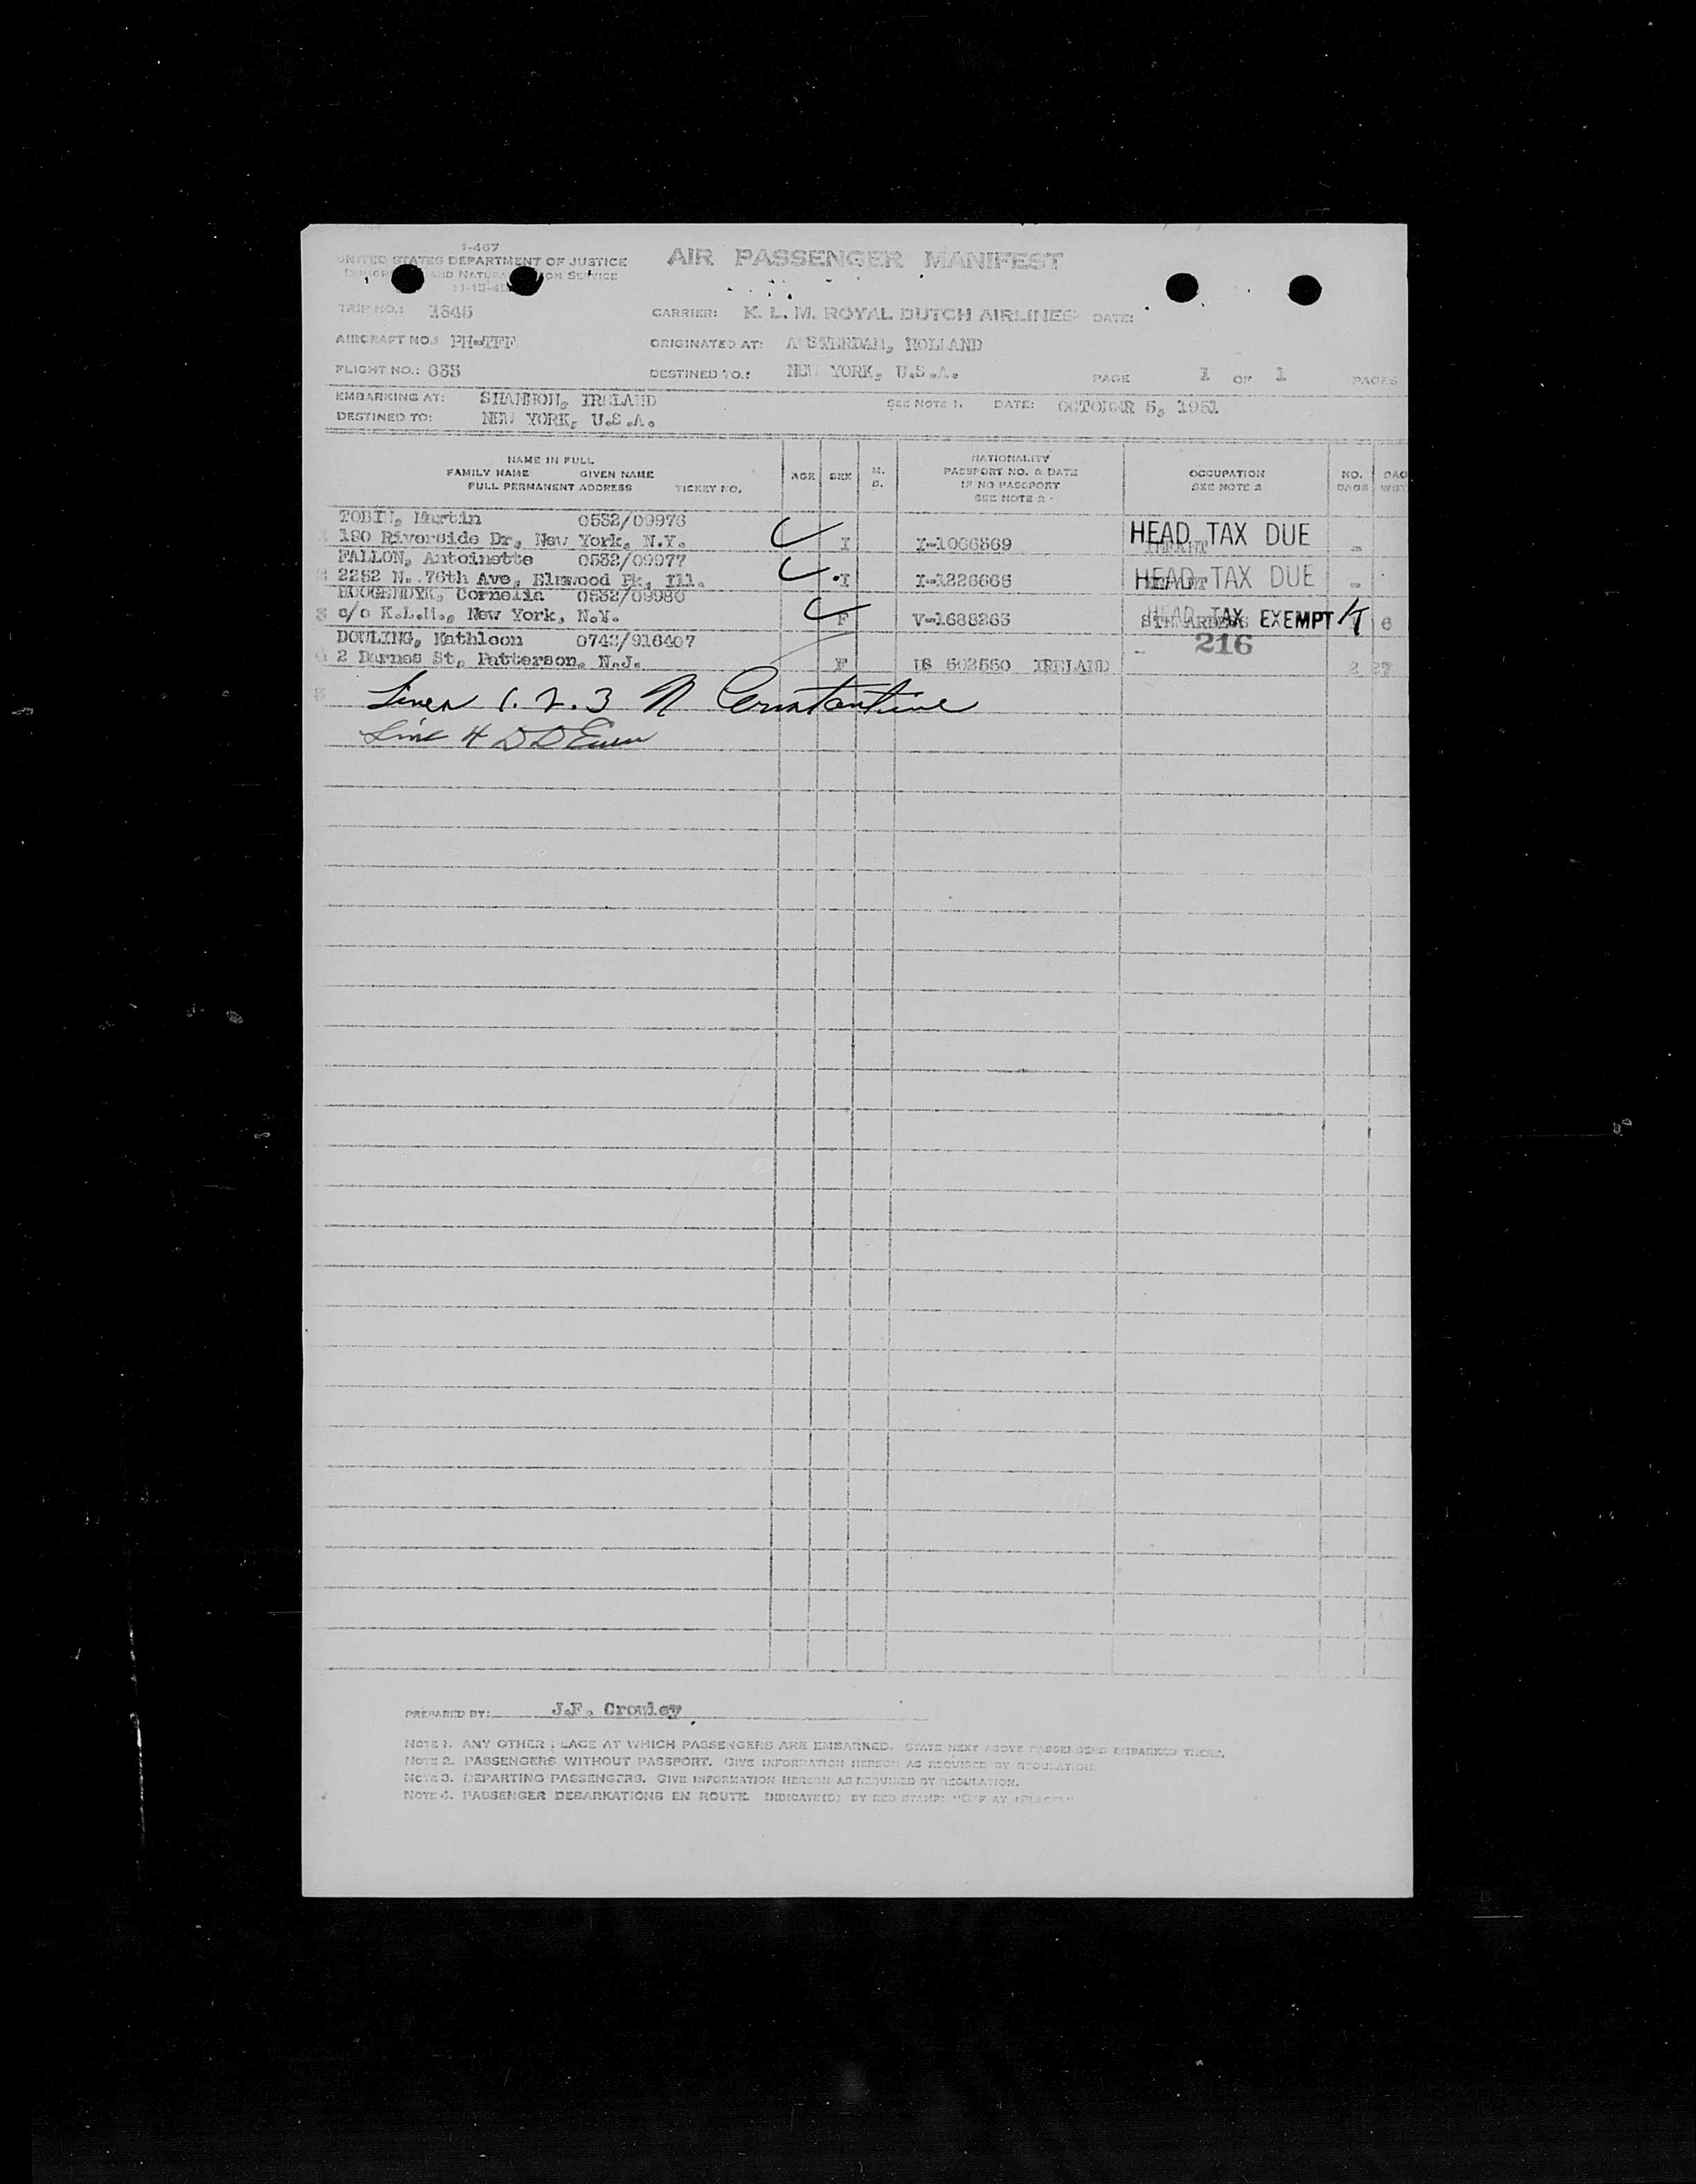 I-467
UNITED STATES DEPARTMENT OF JUSTICE
AND SERVICE
AIR PASSENGER MANIFEST
TRIP NO.: 1645
CARRIER: K. L. M. ROYAL DUTCH AIRLINES DATE:
AIRCRAFT NO.: PH-TFF
ORIGINATED AT: AMSTERDAM, HOLLAND
FLIGHT NO.: 633
DESTINED TO.: NEW YORK, U.S.A.
PAGE 1 OF 1 PAGES
EMBARKING AT: SHANNON, IRELAND
SEE NOTE 1. DATE: OCTOBER 5, 1951
DESTINED TO: NEW YORK, U.S.A.
NAME IN FULL
FAMILY NAME GIVEN NAME
FULL PERMANENT ADDRESS TICKET NO.
AGE
SEX
M. S.
NATIONALITY
PASSPORT NO. & DATE
IF NO PASSPORT
SEE NOTE 2
OCCUPATION
SEE NOTE 2
NO. BAGS
BAG WGT
TOBIN, Martin 0532/09976
190 Riverside Dr, New York, N.Y. I I-1066569 INFANT -
HEAD TAX DUE
FALLON, Antoinette 0532/09977
2 2252 N. 76th Ave, Elmwood Pk, Ill. I I-1226665 INFANT -
HEAD TAX DUE
HOOGENDYK, Cornelia 0532/09980
3 c/o K.L.M., New York, N.Y. F V-1688265 STEWARDESS 6
HEAD TAX EXEMPT
216
DOWLING, Kathleen 0742/916407
4 2 Barnes St, Patterson, N.J. F US 502550 IRELAND - 2 27
5
Lines 1. 2. 3 N Constantine
Line 4 D D
PREPARED BY: J.F. Crowley
NOTE 1. ANY OTHER PLACE AT WHICH PASSENGERS ARE EMBARKED. STATE NEXT ABOVE PASSENGERS EMBARKED THERE.
NOTE 2. PASSENGERS WITHOUT PASSPORT. GIVE INFORMATION HEREON AS REQUIRED BY REGULATION.
NOTE 3. DEPARTING PASSENGERS. GIVE INFORMATION HEREON AS REQUIRED BY REGULATION.
NOTE 4. PASSENGER DEBARKATIONS EN ROUTE. INDICATE(D) BY RED STAMP: "OFF AT (PLACE)"